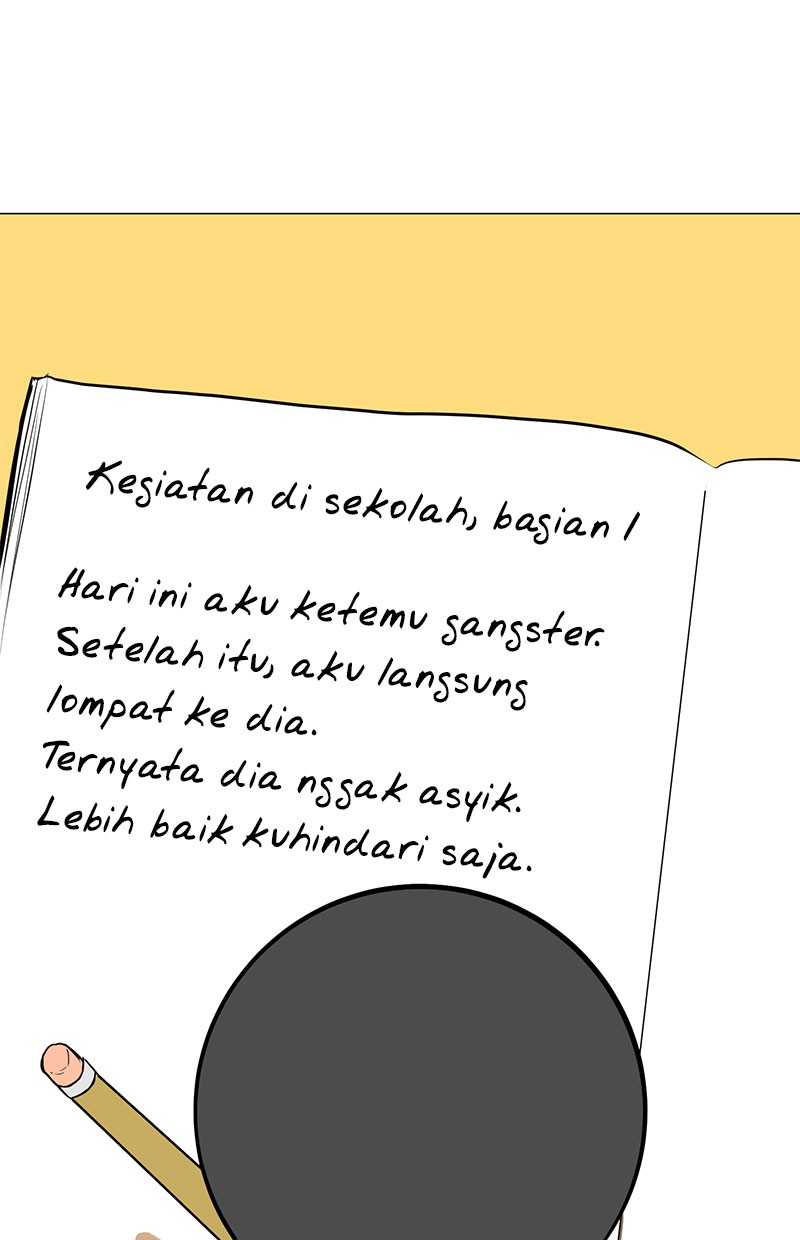 Kegiatan di sekolah, bagian 1
Hari ini aku ketemu gangster.
Setelah itu, aku langsung
lompat ke dia.
Ternyata dia nggak asyik.
Lebih baik kuhindari saja.